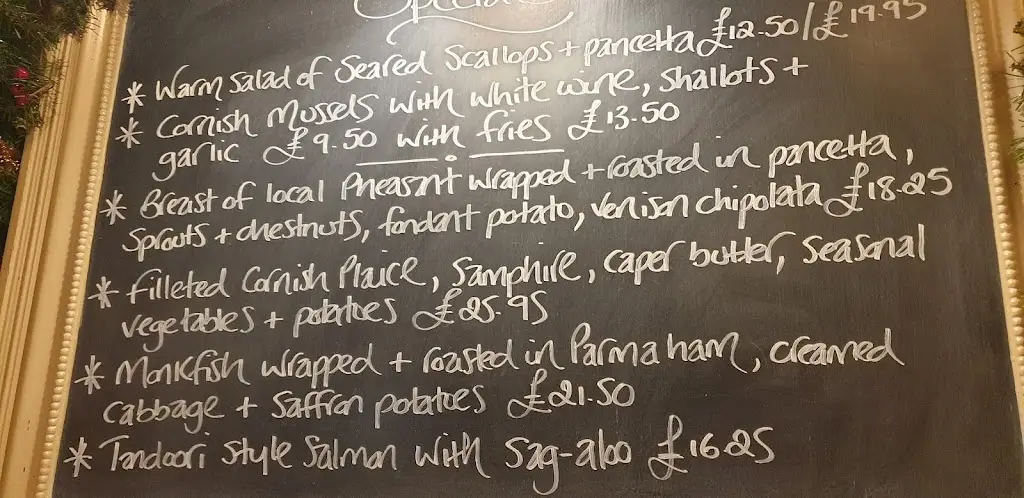 Specials
* Warm salad of Seared Scallops + pancetta £12.50/£19.95
* Cornish Mussels with white wine, shallots +
garlic £9.50 with fries £13.50
* Breast of local Pheasant wrapped + roasted in pancetta,
Sprouts + chestnuts, fondant potato, venison chipolata £18.25
* filleted Cornish Plaice, Samphire, caper butter, seasonal
vegetables + potatoes £25.95
* Monkfish wrapped + roasted in Parma ham, creamed
cabbage + Saffron potatoes £21.50
* Tandoori style Salmon with sag-aloo £16.25